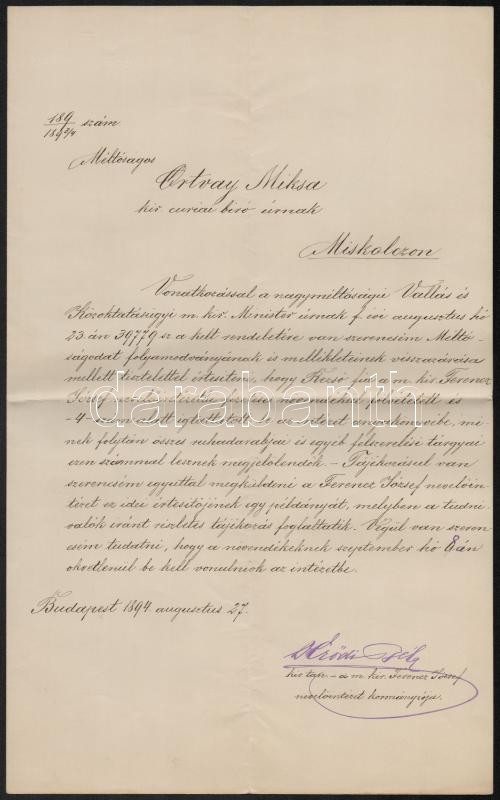 189
1893/4 szám.
Méltóságos
Ortvay Miksa
kir. curiai biró úrnak
Miskolczon
Vonatkozással a nagyméltóságú Vallás és
Közoktatásügyi m. kir. Minister úrnak f. évi augusztus hó
23.án 39779 sz. a. kelt rendeletére van szerencsém Méltó-
ságodat folyamodványának és mellékleteinek visszazárása
mellett tisztelettel értesíteni, hogy fia a m. kir. Ferencz
József felvétetett és
-4- szám alatt az intézet anyakönyvibe, mi-
nek folytán összes ruhadarabjai és egyéb felszerelési tárgyai
ezen számmal lesznek megjelölendők. - Tájékozásul van
szerencsém egyúttal megküldeni a Ferencz József nevelőin-
tézet ez idei értesítőjének egy példányát, melyben a tudni-
valók iránt részletes tájékozás foglaltatik. Végül van szeren-
csém tudatni, hogy a növendékeknek szeptember hó 8.án
okvetlenül be kell vonulniok az intézetbe.
Budapest 1894. augusztus 27.
Erődi Béla
kir. tan. - a m. kir. Ferencz József
nevelőintézet kormányzója.
darabanth